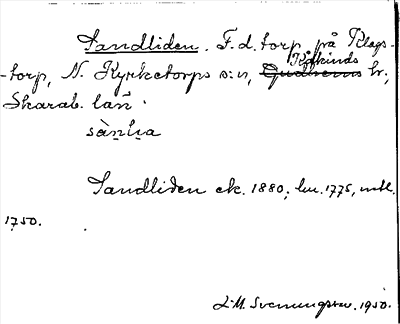 Sandliden. F.d. torp på Klags-
-torp, N. Kyrketorps s:n, Gudhems Kåkinds hr;
Skarab. län.
sàn̠l̠ia
Sandliden ek. 1880; hu. 1775, mtl.
1750.
L.M. Svenungsson. 1950.